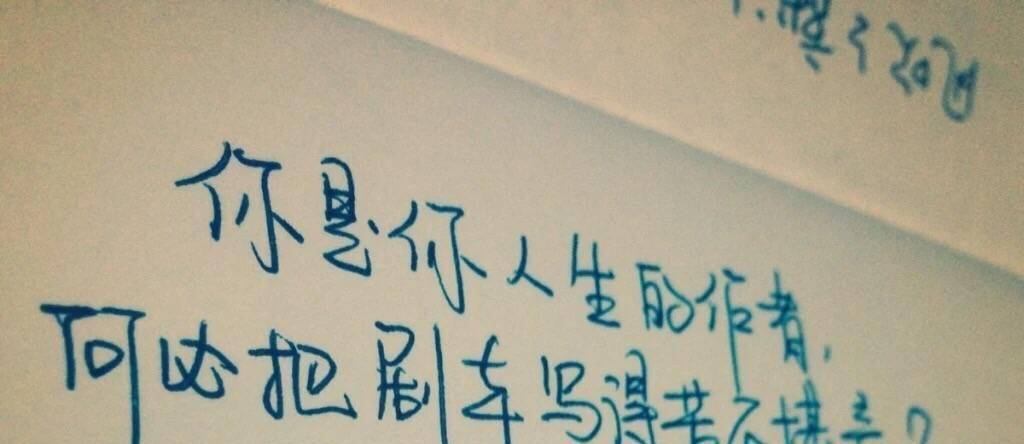 你是你人生的作者,
何必把剧本写得苦不堪言?